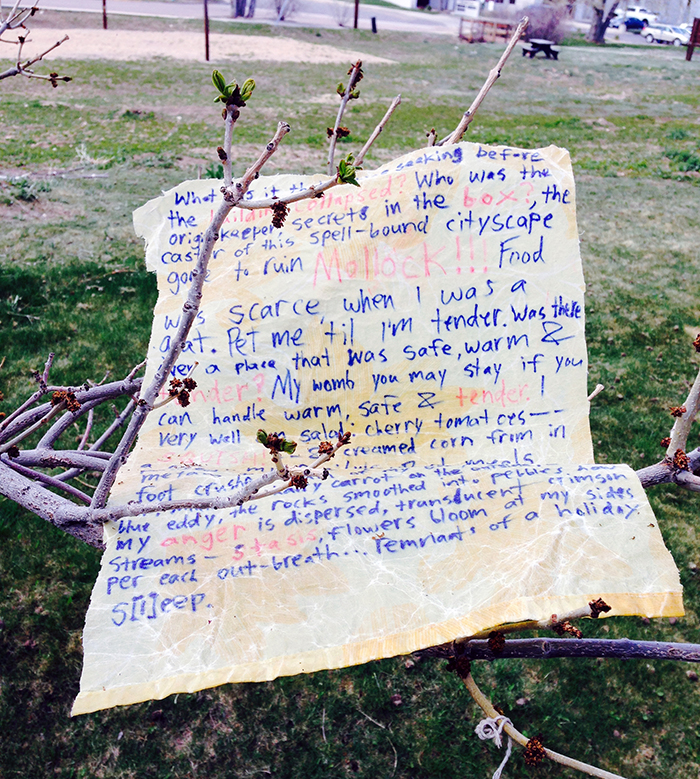 What it seeking before
the building collapsed? Who was the
orig keeper, secrets in the box?, the
caster of this spell-bound cityscape
gone to ruin Mollock!!! Food
was scarce when I was a
Pet me 'til I'm tender. Was there
a place that was safe, warm &
tender? My womb you may stay if you
can handle warm, safe & tender. I
very well salad: cherry tomatoes--
creamed corn from in
foot carrot or the
blue eddy, the rocks smoothed into pebbles crimson
my anger is dispersed, translucent at my sides
streams - stasis, flowers bloom
per each out-breath... remnants of a holiday
S[l]eep.